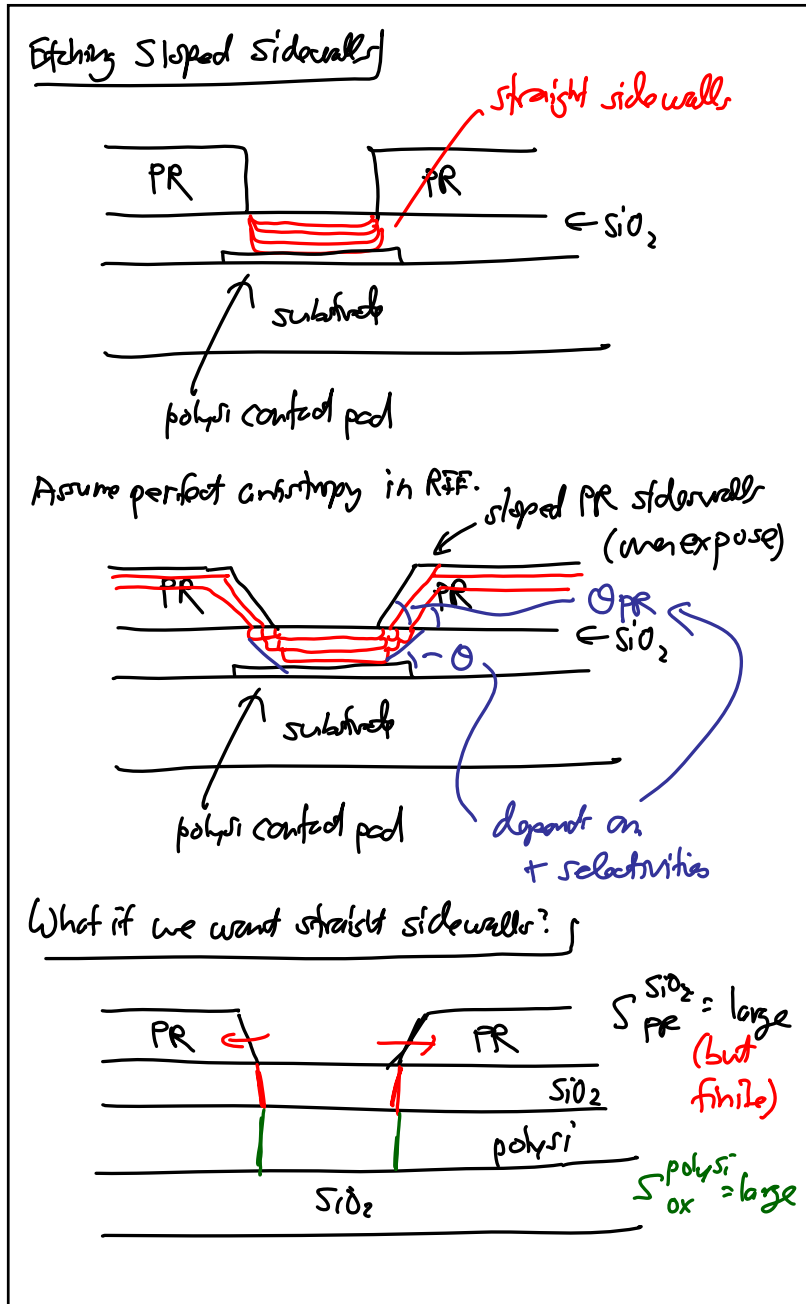 Etching Sloped Sidewalls
straight sidewalls
PR PR
← SiO2
substrate
polysi contact pad
Assume perfect anistropy in RIE.
sloped PR sidewalls
(overexpose)
PR PR
θPR
← SiO2
θ
substrate
polysi contact pad
depends on
+ selectivities
What if we want straight sidewalls?
PR PR
S SiO2 PR = large
(but
finite)
SiO2
polysi
S polysi ox = large
SiO2